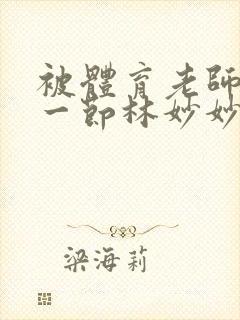 被體育老師
一節林妙妙
梁海莉